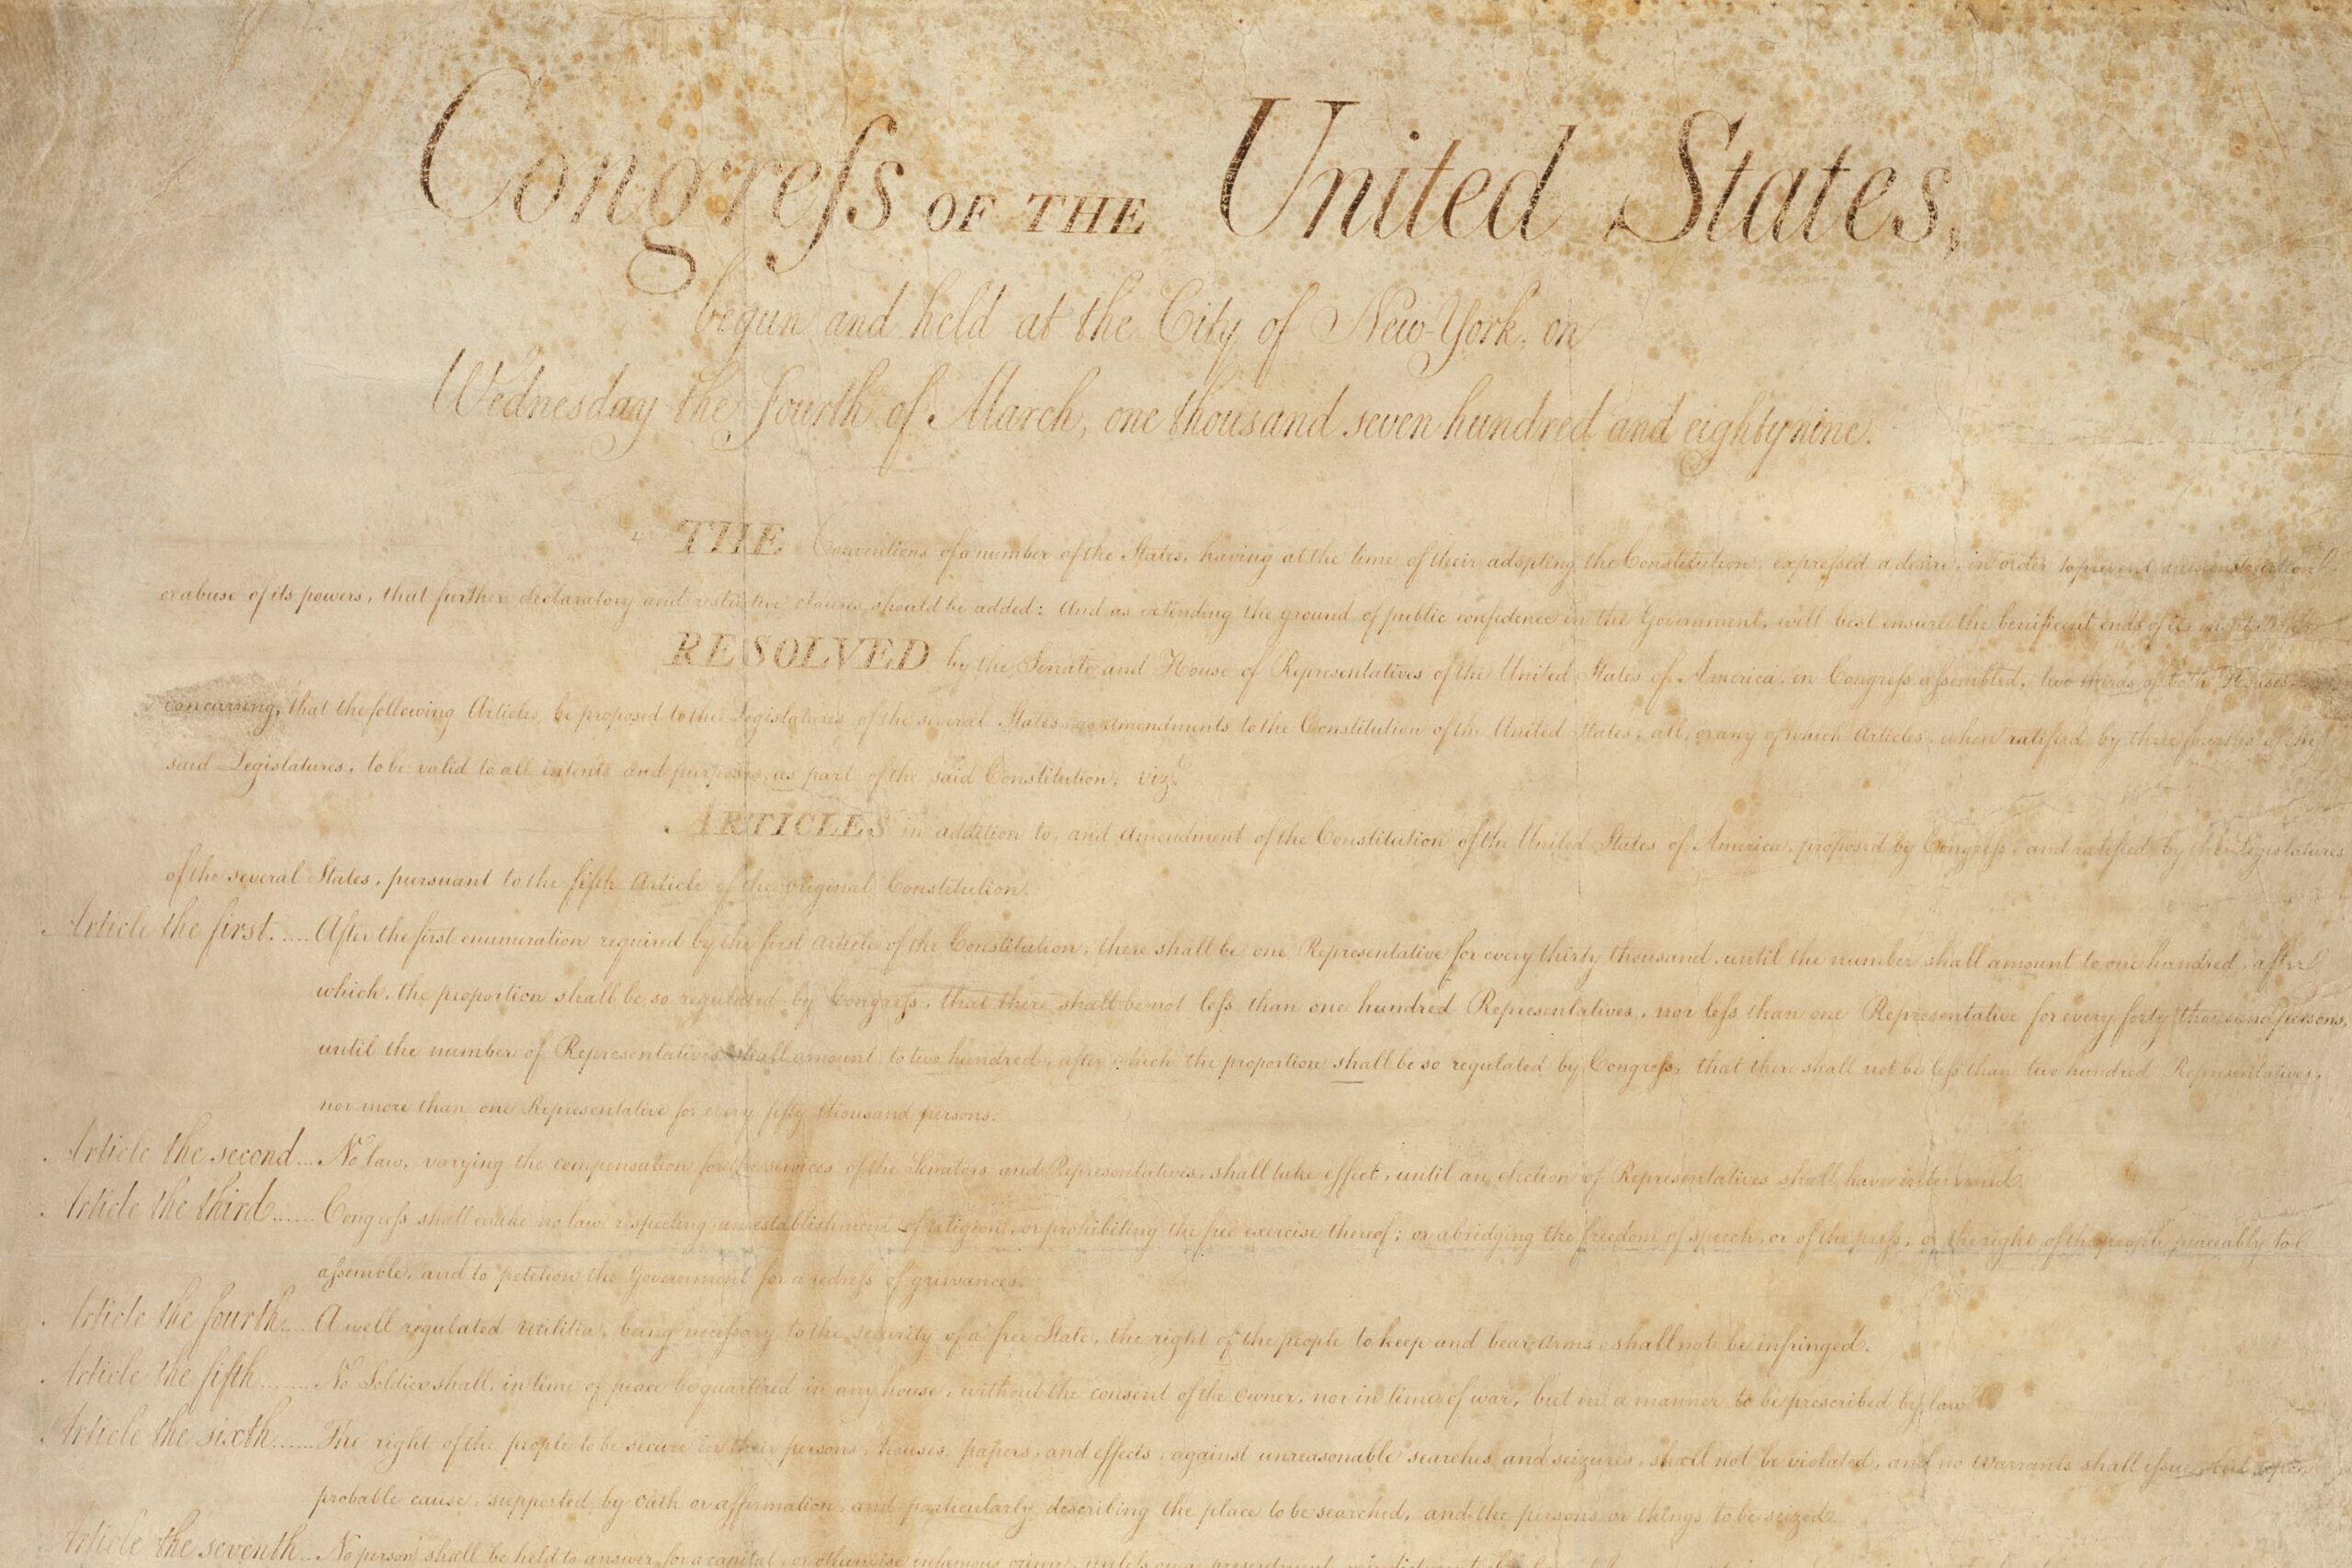 Congreſs OF THE United States,
begun and held at the City of New-York, on
Wednesday the fourth of March, one thousand seven hundred and eighty nine.
THE Conventions of a number of the States, having at the time of their adopting the Constitution, expreſsed a desire, in order to prevent misconstruction
or abuse of its powers, that further declaratory and restrictive clauses should be added: And as extending the ground of public confidence in the Government, will best ensure the benificent ends of its institution
RESOLVED by the Senate and House of Representatives of the United States of America, in Congreſs aſsembled, two thirds of both Houses
concurring, that the following Articles be proposed to the Legislatures of the several States, as amendments to the Constitution of the United States, all, or any of which Articles, when ratified by three fourths of the
said Legislatures, to be valid to all intents and purposes, as part of the said Constitution; viz.t
ARTICLES in addition to, and Amendment of the Constitution of the United States of America, proposed by Congreſs, and ratified by the Legislatures
of the several States, pursuant to the fifth Article of the original Constitution.
Article the first..... After the first enumeration required by the first Article of the Constitution, there shall be one Representative for every thirty thousand, until the number shall amount to one hundred, after
which, the proportion shall be so regulated by Congreſs, that there shall be not leſs than one hundred Representatives, nor leſs than one Representative for every forty thousand persons,
until the number of Representatives shall amount to two hundred, after which the proportion shall be so regulated by Congreſs, that there shall not be leſs than two hundred Representatives,
nor more than one Representative for every fifty thousand persons.
Article the second... No law, varying the compensation for the services of the Senators and Representatives, shall take effect, until an election of Representatives shall have intervened.
Article the third...... Congreſs shall make no law respecting an establishment of religion, or prohibiting the free exercise thereof; or abridging the freedom of speech, or of the preſs, or the right of the people peaceably to
aſsemble, and to petition the Government for a redreſs of grievances.
Article the fourth.... A well regulated Militia, being neceſsary to the security of a free State, the right of the people to keep and bear Arms, shall not be infringed.
Article the fifth........ No Soldier shall, in time of peace be quartered in any house, without the consent of the Owner, nor in time of war, but in a manner to be prescribed by law.
Article the sixth...... The right of the people to be secure in their persons, houses, papers, and effects, against unreasonable searches and seizures, shall not be violated, and no Warrants shall iſsue, but upon
probable cause, supported by Oath or affirmation, and particularly describing the place to be searched, and the persons or things to be seized.
Article the seventh... No person shall be held to answer for a capital, or otherwise infamous crime, unleſs on a presentment or indictment